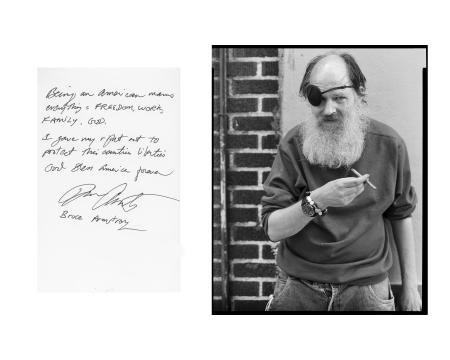 Being an American means
everything = FREEDOM, WORK,
FAMILY, GOD.
I gave my right not to
protect this countries liberties
God Bless America forever
Bruce Armstrong